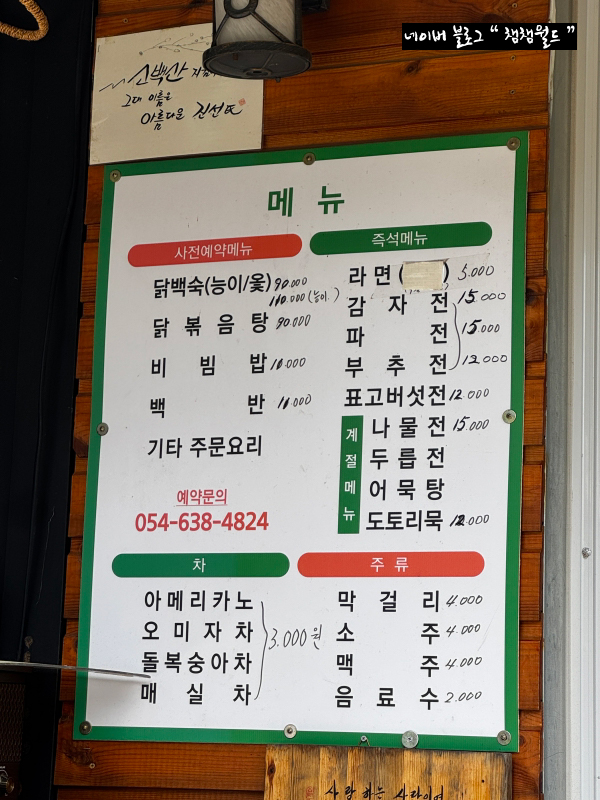 네이버 블로그 “ 챔챔월드 ”
소백산
그대 이름은
아름다운 진선
메 뉴
사전예약메뉴
닭백숙(능이/옻) 90.000
110.000 (능이.)
닭볶음탕 90.000
비빔밥 10.000
백반 10.000
기타 주문요리
예약문의
054-638-4824
즉석메뉴
라면( ) 5.000
감자전 15.000
파전 15.000
부추전 12.000
표고버섯전 12.000
계절메뉴
나물전 15.000
두릅전
어묵탕
도토리묵 12.000
차
아메리카노
오미자차
돌복숭아차
매실차
3.000원
주류
막걸리 4.000
소주 4.000
맥주 4.000
음료수 2.000
사랑하는